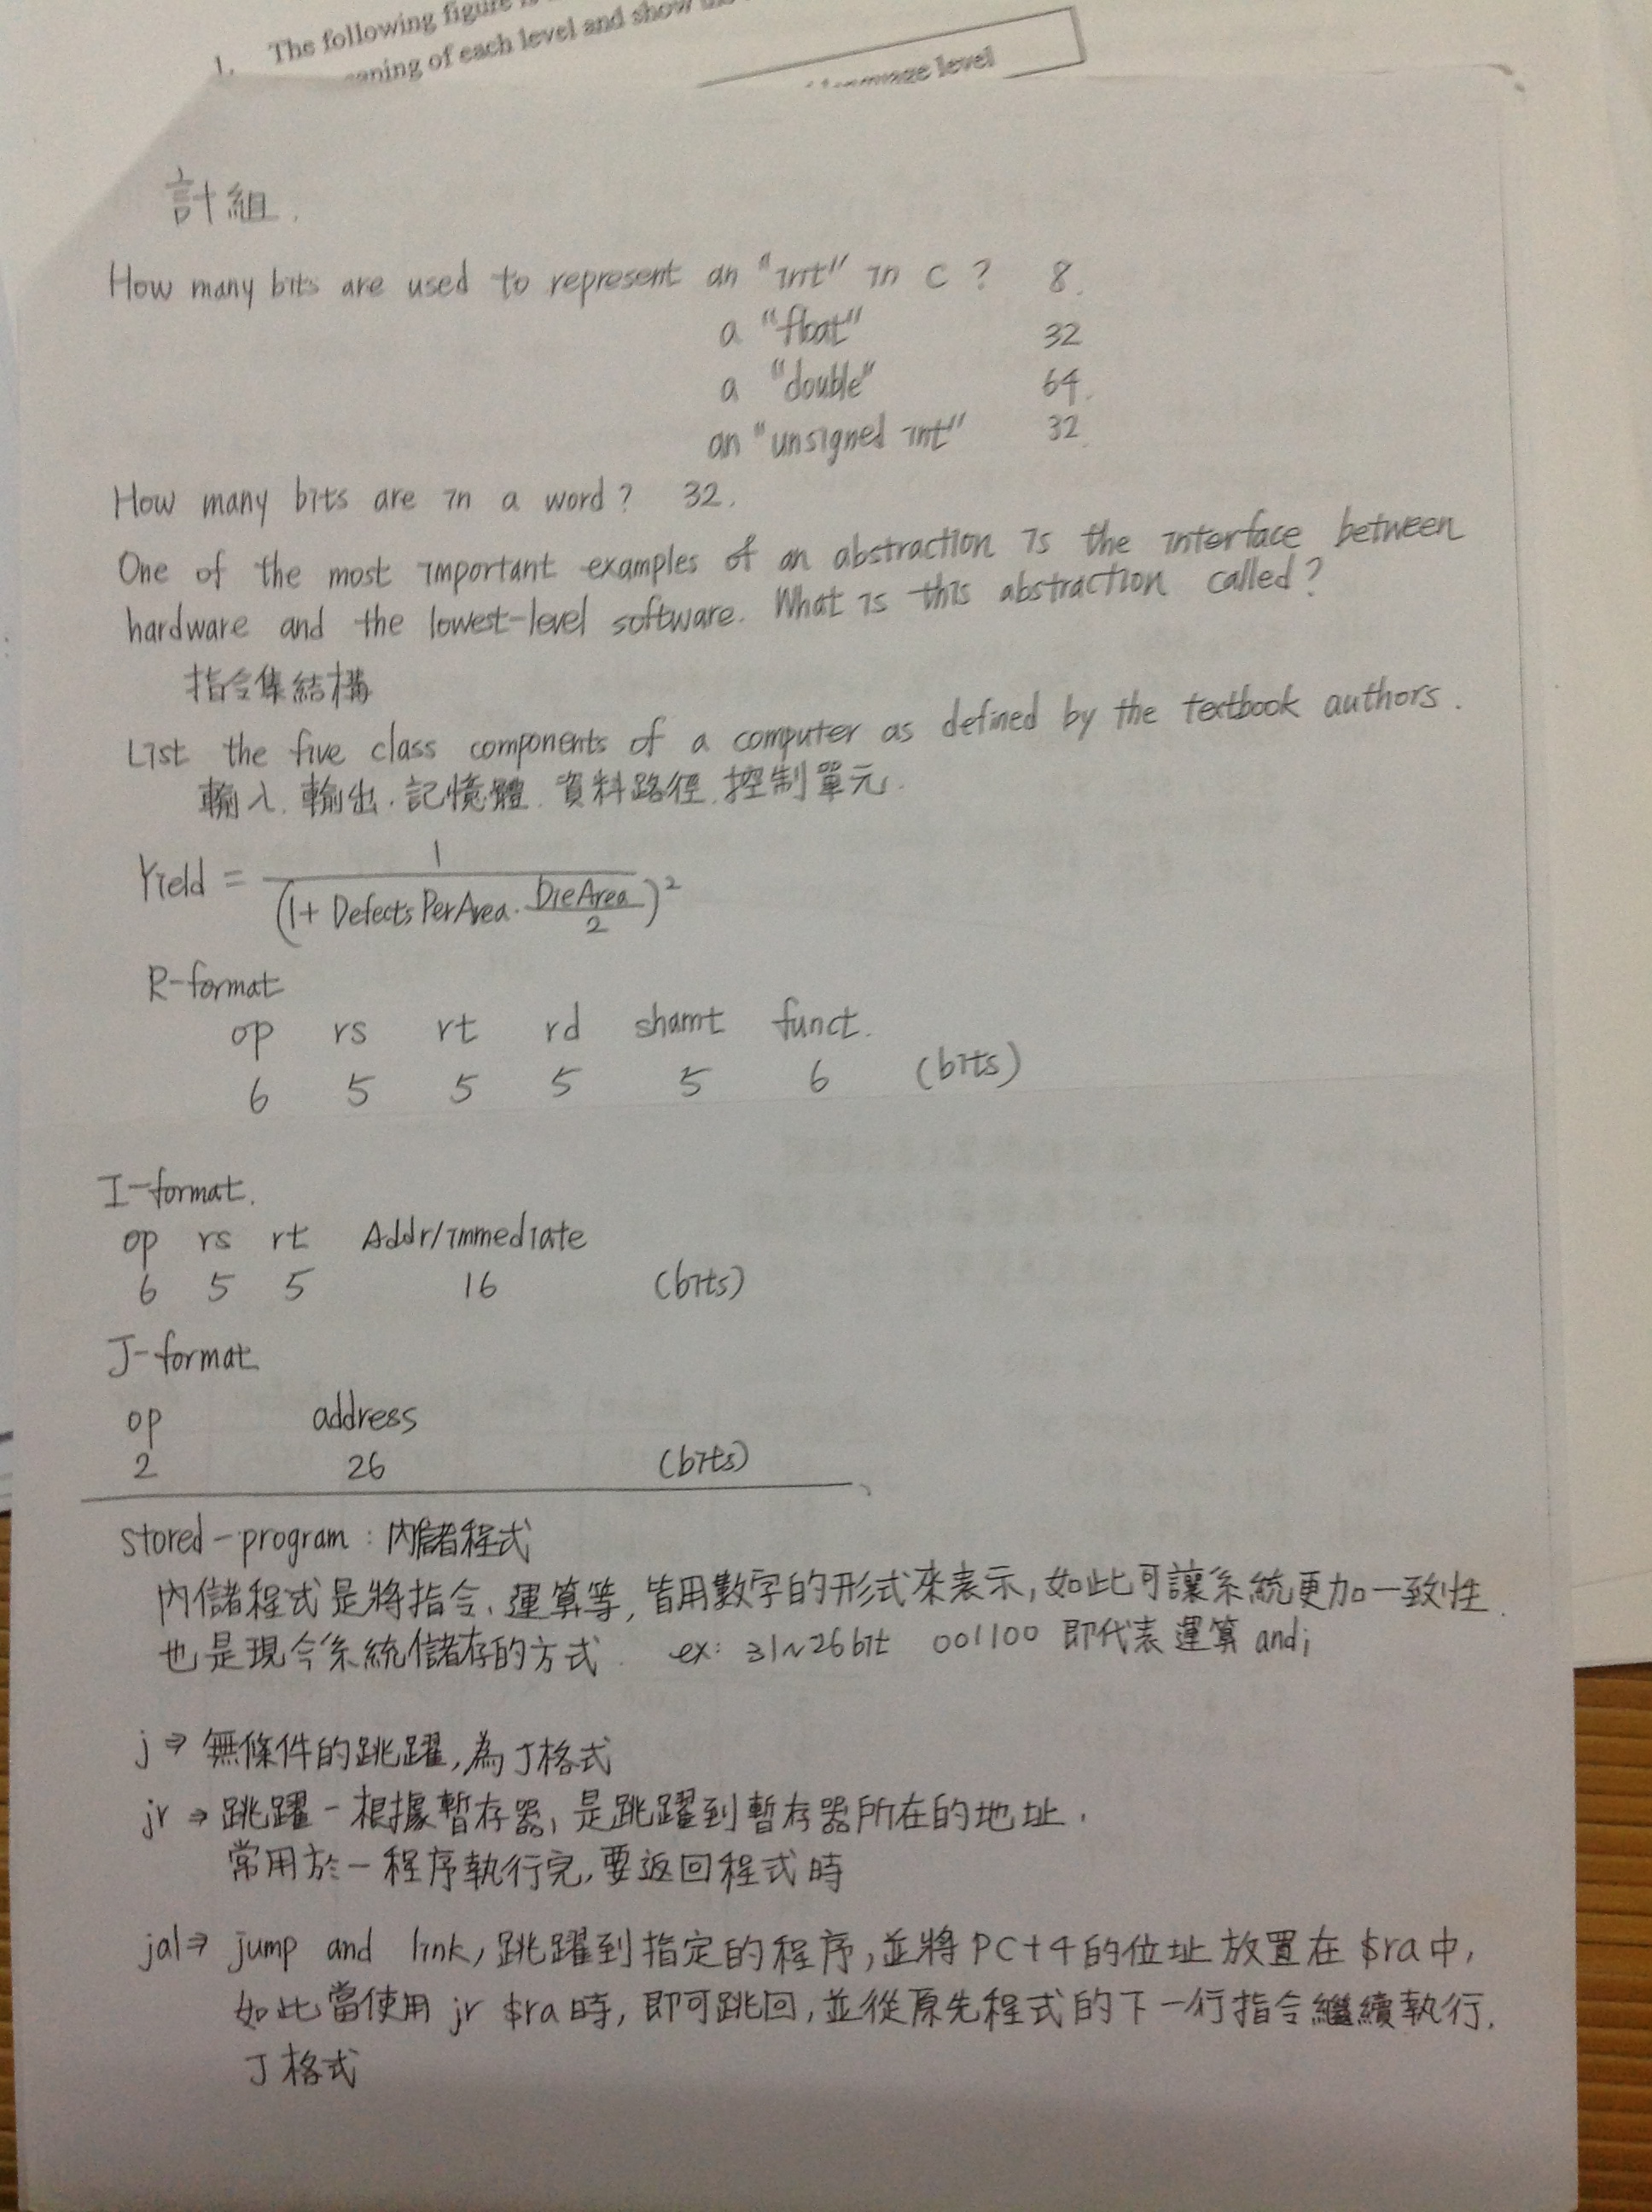 1. The following figure
of each level and show
level
計組.
How many bits are used to represent an "int" in C ? 8.
a "float" 32
a "double" 64.
an "unsigned int" 32
How many bits are in a word? 32.
One of the most important examples of an abstraction is the interface between
hardware and the lowest-level software. What is this abstraction called?
指令集結構
List the five class components of a computer as defined by the textbook authors.
輸入. 輸出. 記憶體. 資料路徑. 控制單元.
Yield = 1 / (1 + Defects Per Area · Die Area / 2)²
R-format
op rs rt rd shamt funct.
6 5 5 5 5 6 (bits)
I-format.
op rs rt Addr/immediate
6 5 5 16 (bits)
J-format
op address
2 26 (bits)
stored-program : 內儲程式
內儲程式是將指令、運算等, 皆用數字的形式來表示, 如此可讓系統更加一致性.
也是現今系統儲存的方式. ex: 31~26bit 001100 即代表運算 andi
j ⇒ 無條件的跳躍, 為J格式
jr ⇒ 跳躍-根據暫存器, 是跳躍到暫存器所在的地址.
常用於一程序執行完, 要返回程式時
jal ⇒ jump and link, 跳躍到指定的程序, 並將PC+4的位址放置在$ra中,
如此當使用 jr $ra時, 即可跳回, 並從原先程式的下一行指令繼續執行.
J格式